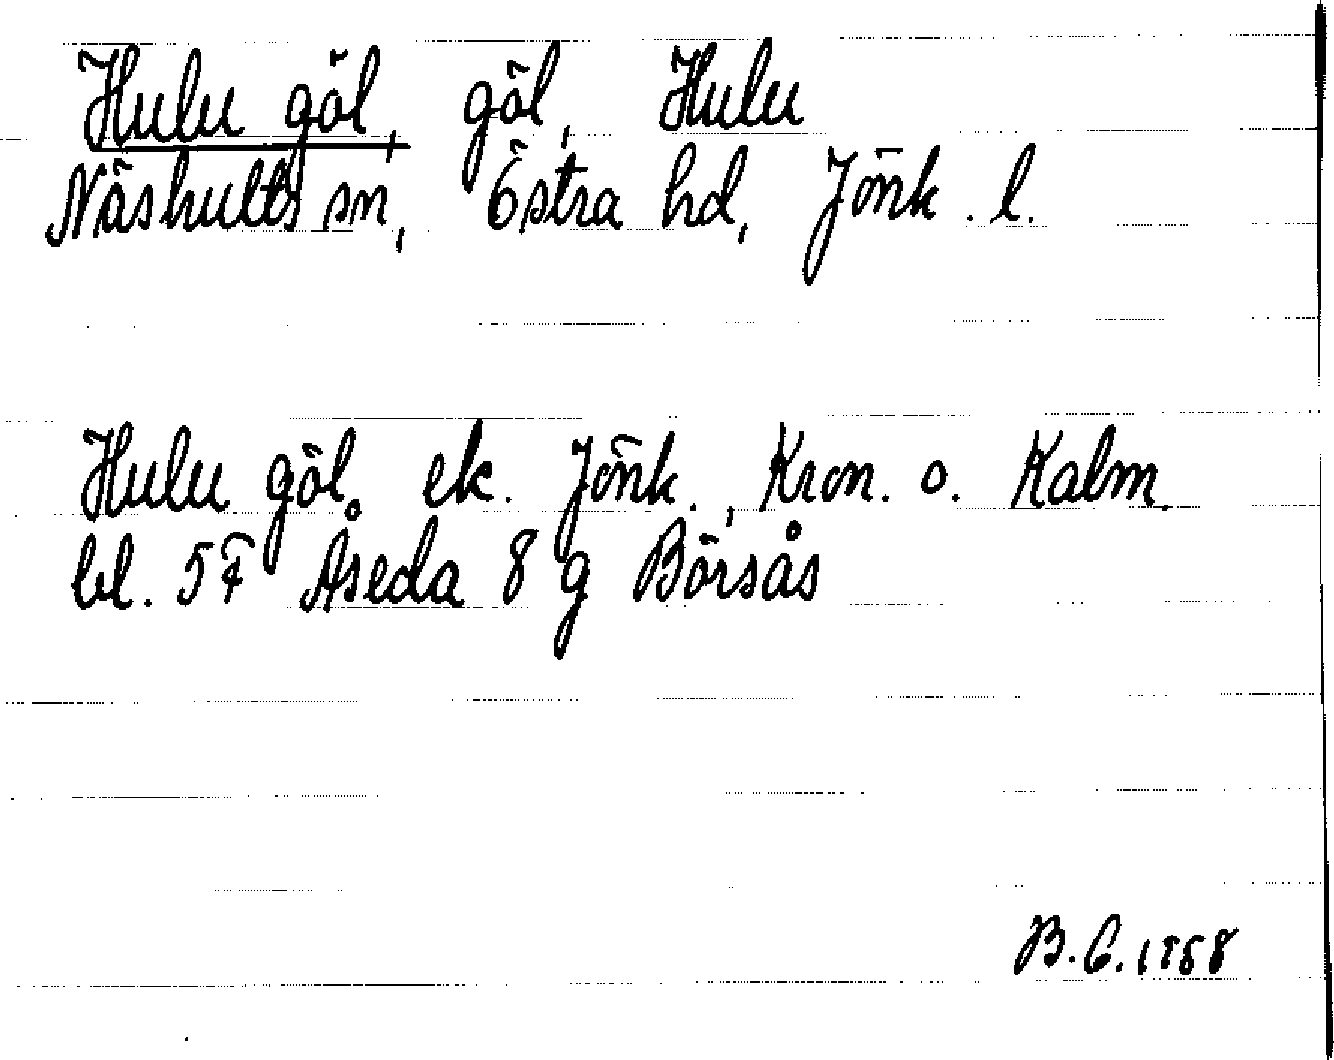 Hulu göl, göl, Hulu
Näshults sn, Östra hd, Jönk. l.
Hulu göl. ek. Jönk., Kron. o. Kalm.
bl. 5F Åseda 8 g Börsås
B.C. 1968